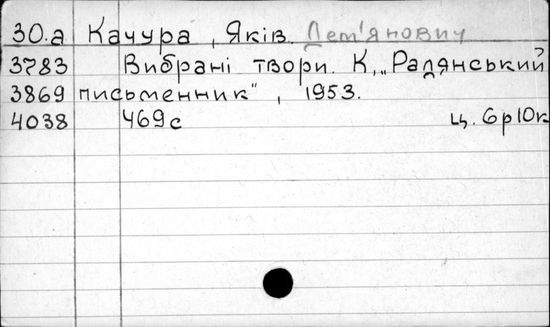 30.а Качура, Яків Дем'янович
3783 Вибрані твори. К., „Радянський
3869 письменник", 1953.
4038 469с ц. 6р10к